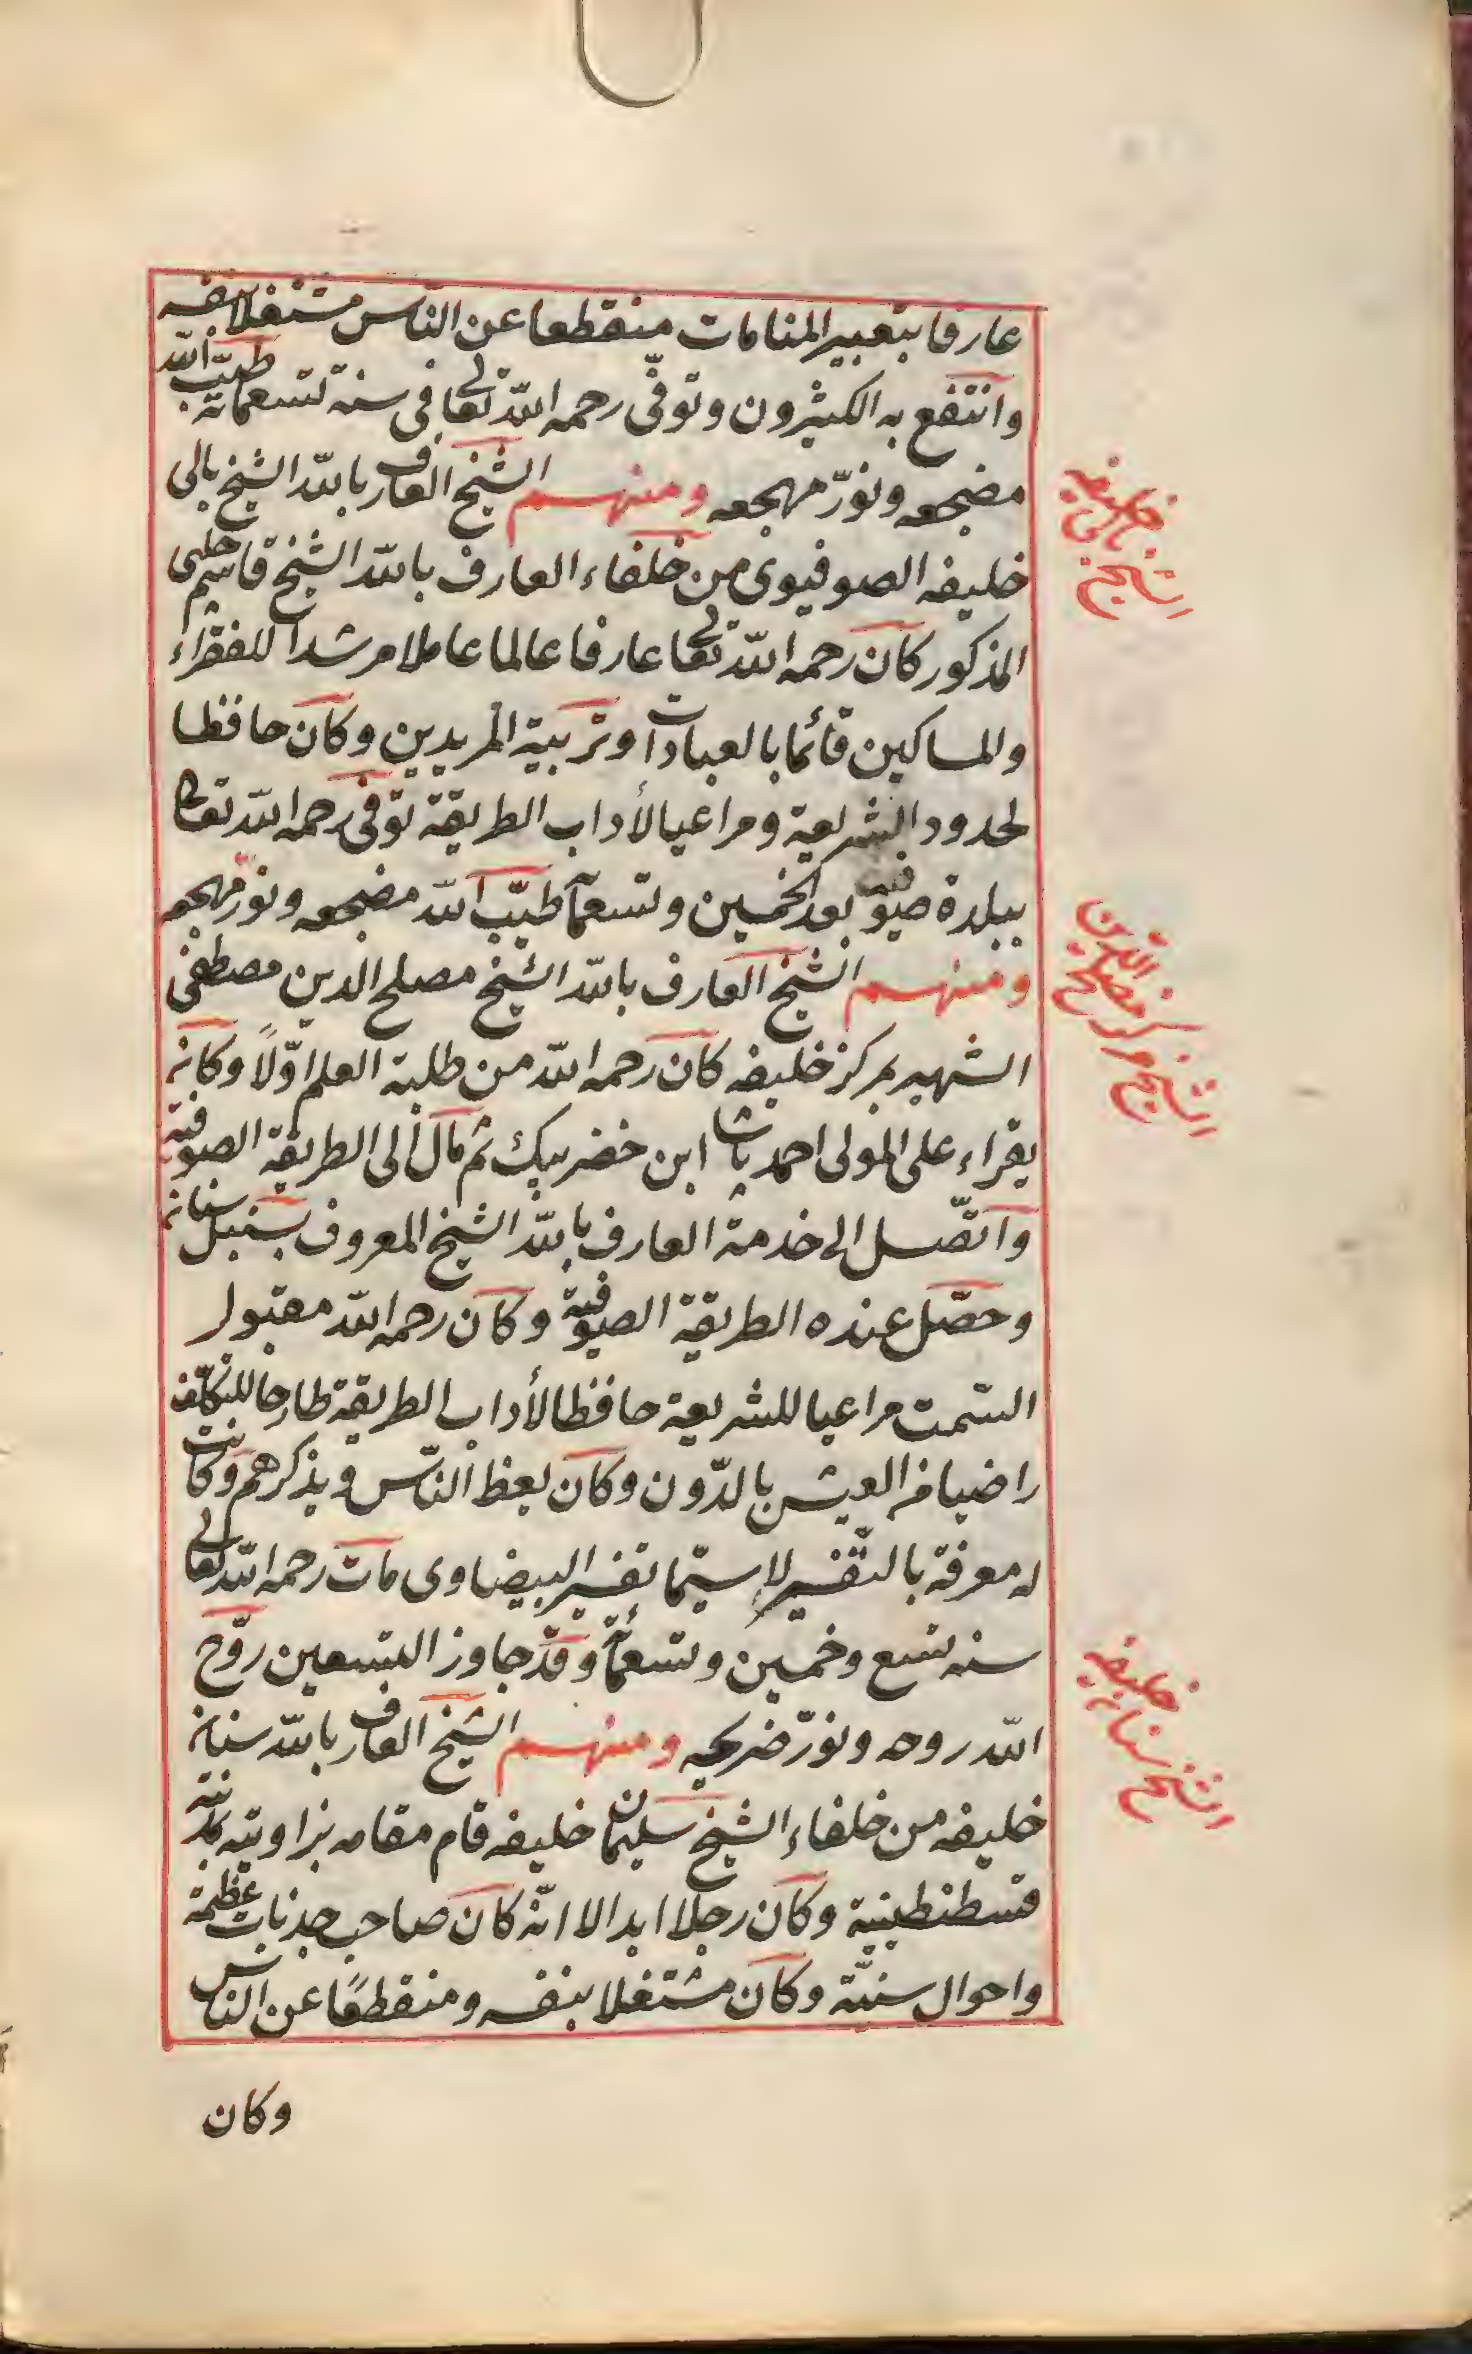 عارفا بتعبير المنامات منقطعا عن الناس مشتغلا بنفسه
وانتفع به الكثيرون وتوفّى رحمه الله تعالى فى سنة تسعمائة طيّب الله
مضجعه ونوّر مهجعه ومنهم الشيخ العارف بالله الشيخ بالى
خليفه الصوفيوى من خلفاء العارف بالله الشيخ قاسم چلبى
المذكور كان رحمه الله تعالى عارفا عالما عاملا مرشدا للفقراء
والمساكين قائما بالعبادات وتربية المريدين وكان حافظا
لحدود الشريعة ومراعيا لأداب الطريقة توفى رحمه الله تعالى
ببلدة صوفية بعد الخمسين وتسعمائة طيّب الله مضجعه ونوّر مهجعه
ومنهم الشيخ العارف بالله الشيخ مصلح الدين مصطفى
الشهير بمركز خليفه كان رحمه الله من طلبة العلم اوّلاً وكان
يقراء على المولى احمد باشا ابن خضر بيك ثم مال الى الطريقة الصوفية
واتّصل الى خدمة العارف بالله الشيخ المعروف بسنبل سنان
وحصّل عنده الطريقة الصوفية وكان رحمه الله مقبول
السّمت مراعيا للشريعة حافظا لأداب الطريقة طارحا للتكلّف
راضيا من العيش بالدّون وكان يعظ النّاس ويذكرهم وكانت
له معرفة بالتّفسير لا سيّما تفسير البيضاوى مات رحمه الله تعالى
سنه تسع وخمسين وتسعمائة وقد جاوز التسعين روّح
الله روحه ونوّر ضريحه ومنهم الشيخ العارف بالله سنان
خليفه من خلفاء الشيخ سليمان خليفه قام مقامه بزاويته بمدينة
قسطنطينية وكان رجلا ابدالا انّه كان صاحب جذبات عظيمة
واحوال سنيّة وكان مشتغلا بنفسه ومنقطعًا عن الناس
وكان
الشيخ بالى خليفه
الشيخ مركز مصلح الدين
الشيخ سنان خليفه